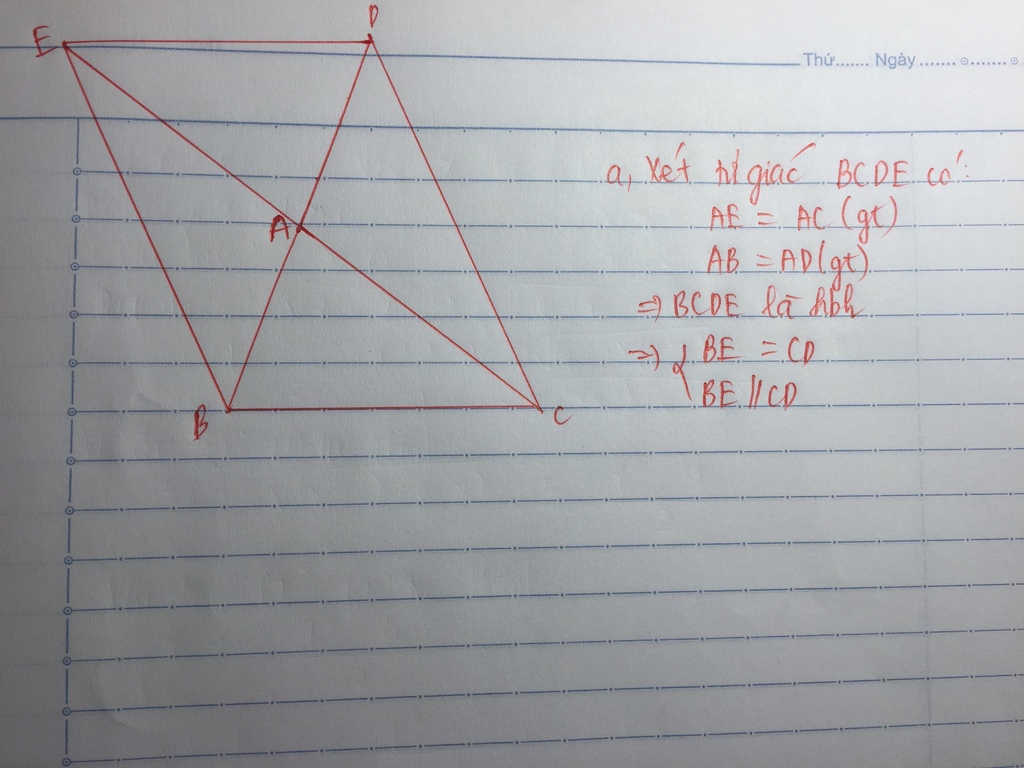 D
E
Thứ....... Ngày
a, Xét tứ giác BCDE có:
AE = AC (gt)
A
AB = AD (gt)
=> BCDE là hbh
=> { BE = CD
BE // CD
B
C